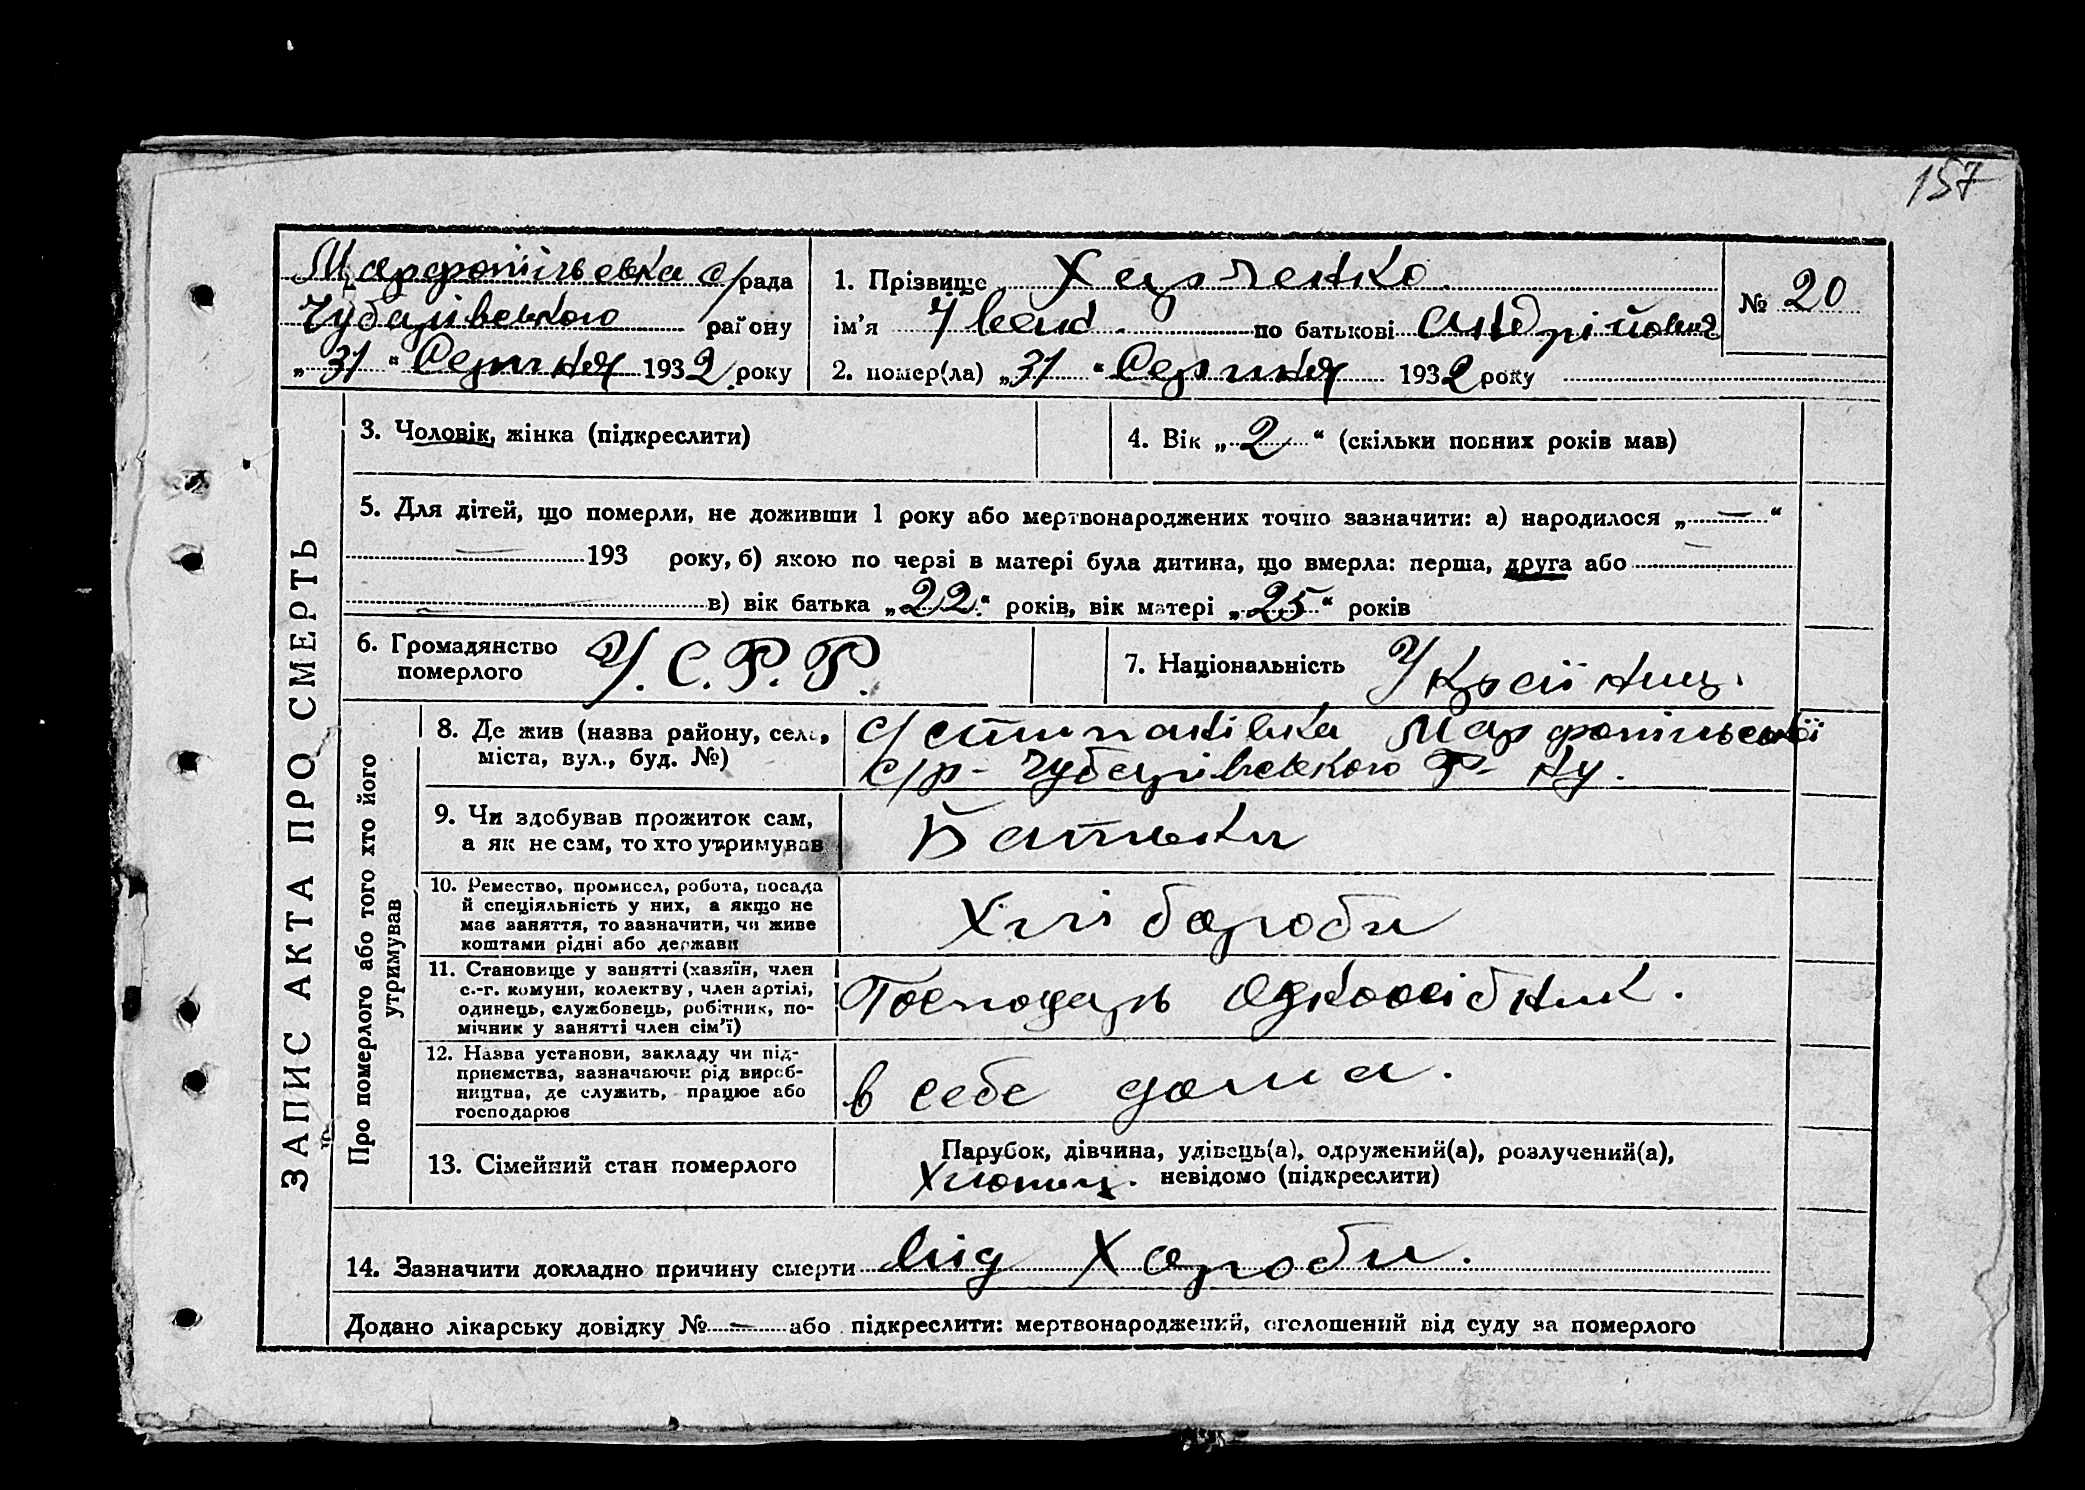 157
Марфопільська с/рада
Чубарівського району
„31“ Серпня 1932 року
1. Прізвище Харченко
ім’я Іван по батькові Андрійович
2. помер(ла) „31“ Серпня 1932 року
№ 20
ЗАПИС АКТА ПРО СМЕРТЬ
3. Чоловік, жінка (підкреслити)
4. Вік „2“ (скільки повних років мав)
5. Для дітей, що померли, не доживши 1 року або мертвонароджених точно зазначити: а) народилося „—“
— 193 року, б) якою по черзі в матері була дитина, що вмерла: перша, друга або —
— в) вік батька „22“ років, вік матері „25“ років
6. Громадянство
померлого
У.С.Р.Р.
7. Національність Українець.
Про померлого або того хто його
утримував
8. Де жив (назва району, села,
міста, вул., буд. №)
Марфопільської
с/р- Чубарівського Р- ну.
9. Чи здобував прожиток сам,
а як не сам, то хто утримував
Батьки
10. Ремество, промисел, робота, посада
й спеціяльність у них, а якщо не
мав заняття, то зазначити, чи живе
коштами рідні або держави
Хліборови
11. Становище у занятті (хазяїн, член
с.-г. комуни, колектву, член артілі,
одинець, службовець, робітник, по-
мічник у занятті член сім’ї)
Господарь Одноосібник.
12. Назва установи, закладу чи під-
приємства, зазначаючи рід вироб-
ництва, де служить, працює або
господарює
в себе дома.
13. Сімейний стан померлого
Парубок, дівчина, удівець(а), одружений(а), розлучений(а),
Хлопиц. невідомо (підкреслити)
14. Зазначити докладно причину смерти від Хороби.
Додано лікарську довідку № — або підкреслити: мертвонароджений, оголошений від суду за померлого